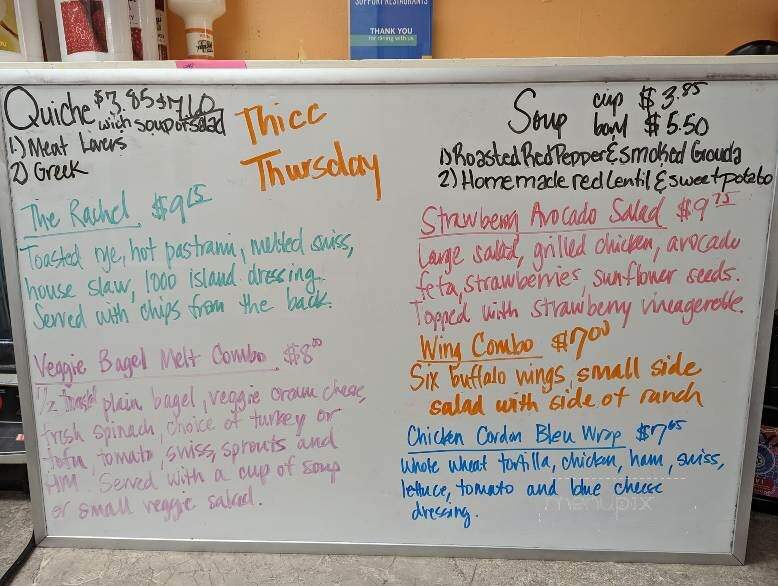 SUPPORT RESTAURANTS
THANK YOU
for dining with us
Quiche $3.85 $7.10
with soup or salad
1.) Meat Lovers
2) Greek
Thicc
Thursday
Soup cup $3.85
bowl $5.50
1) Roasted Red Pepper & smoked Gouda
2.) Homemade red lentil & sweet potato
The Rachel $9.25
Toasted rye, hot pastrami, melted swiss,
house slaw, 1000 island dressing.
Served with chips from the back.
Veggie Bagel Melt Combo $8.00
1/2 toasted plain bagel, veggie cream cheese,
fresh spinach, choice of turkey or
tofu, tomato, swiss, sprouts and
HM. Served with a cup of soup
or small veggie salad.
Strawberry Avocado Salad $9.75
Large salad, grilled chicken, avocado
feta, strawberries, sunflower seeds.
Topped with strawberry vineagerette.
Wing Combo $7.00
Six buffalo wings, small side
salad with side of ranch
Chicken Cordon Bleu Wrap $7.05
Whole wheat tortilla, chicken, ham, swiss,
lettuce, tomato and blue cheese
dressing.